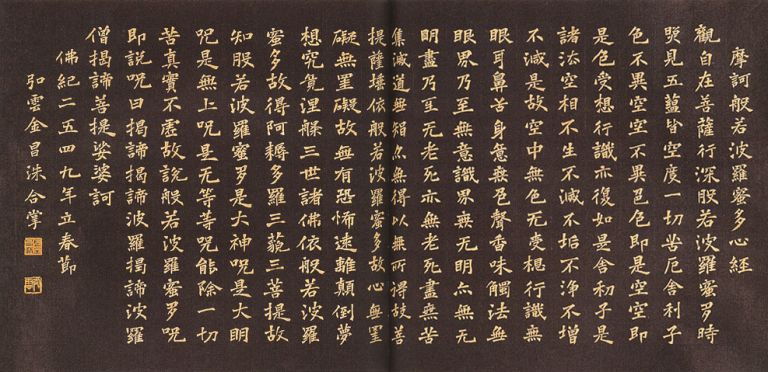 摩訶般若波羅蜜多心經
觀自在菩薩行深般若波羅蜜多時
照見五蘊皆空度一切苦厄舍利子
色不異空空不異色色即是空空即
是色受想行識亦復如是舍利子是
諸法空相不生不滅不垢不淨不增
不減是故空中無色无受想行識無
眼耳鼻舌身意無色聲香味觸法無
眼界乃至無意識界無无明亦無无
明盡乃至无老死亦無老死盡無苦
集滅道無智亦無得以無所得故菩
提薩埵依般若波羅蜜多故心無罣
礙無罣礙故無有恐怖遠離顛倒夢
想究竟涅槃三世諸佛依般若波羅
蜜多故得阿耨多羅三藐三菩提故
知般若波羅蜜多是大神呪是大明
呪是無上呪是无等等呪能除一切
苦真實不虛故說般若波羅蜜多呪
即說呪曰揭諦揭諦波羅揭諦波羅
僧揭諦菩提娑婆訶
佛紀二五四九年立春節
弘雲金昌洙合掌